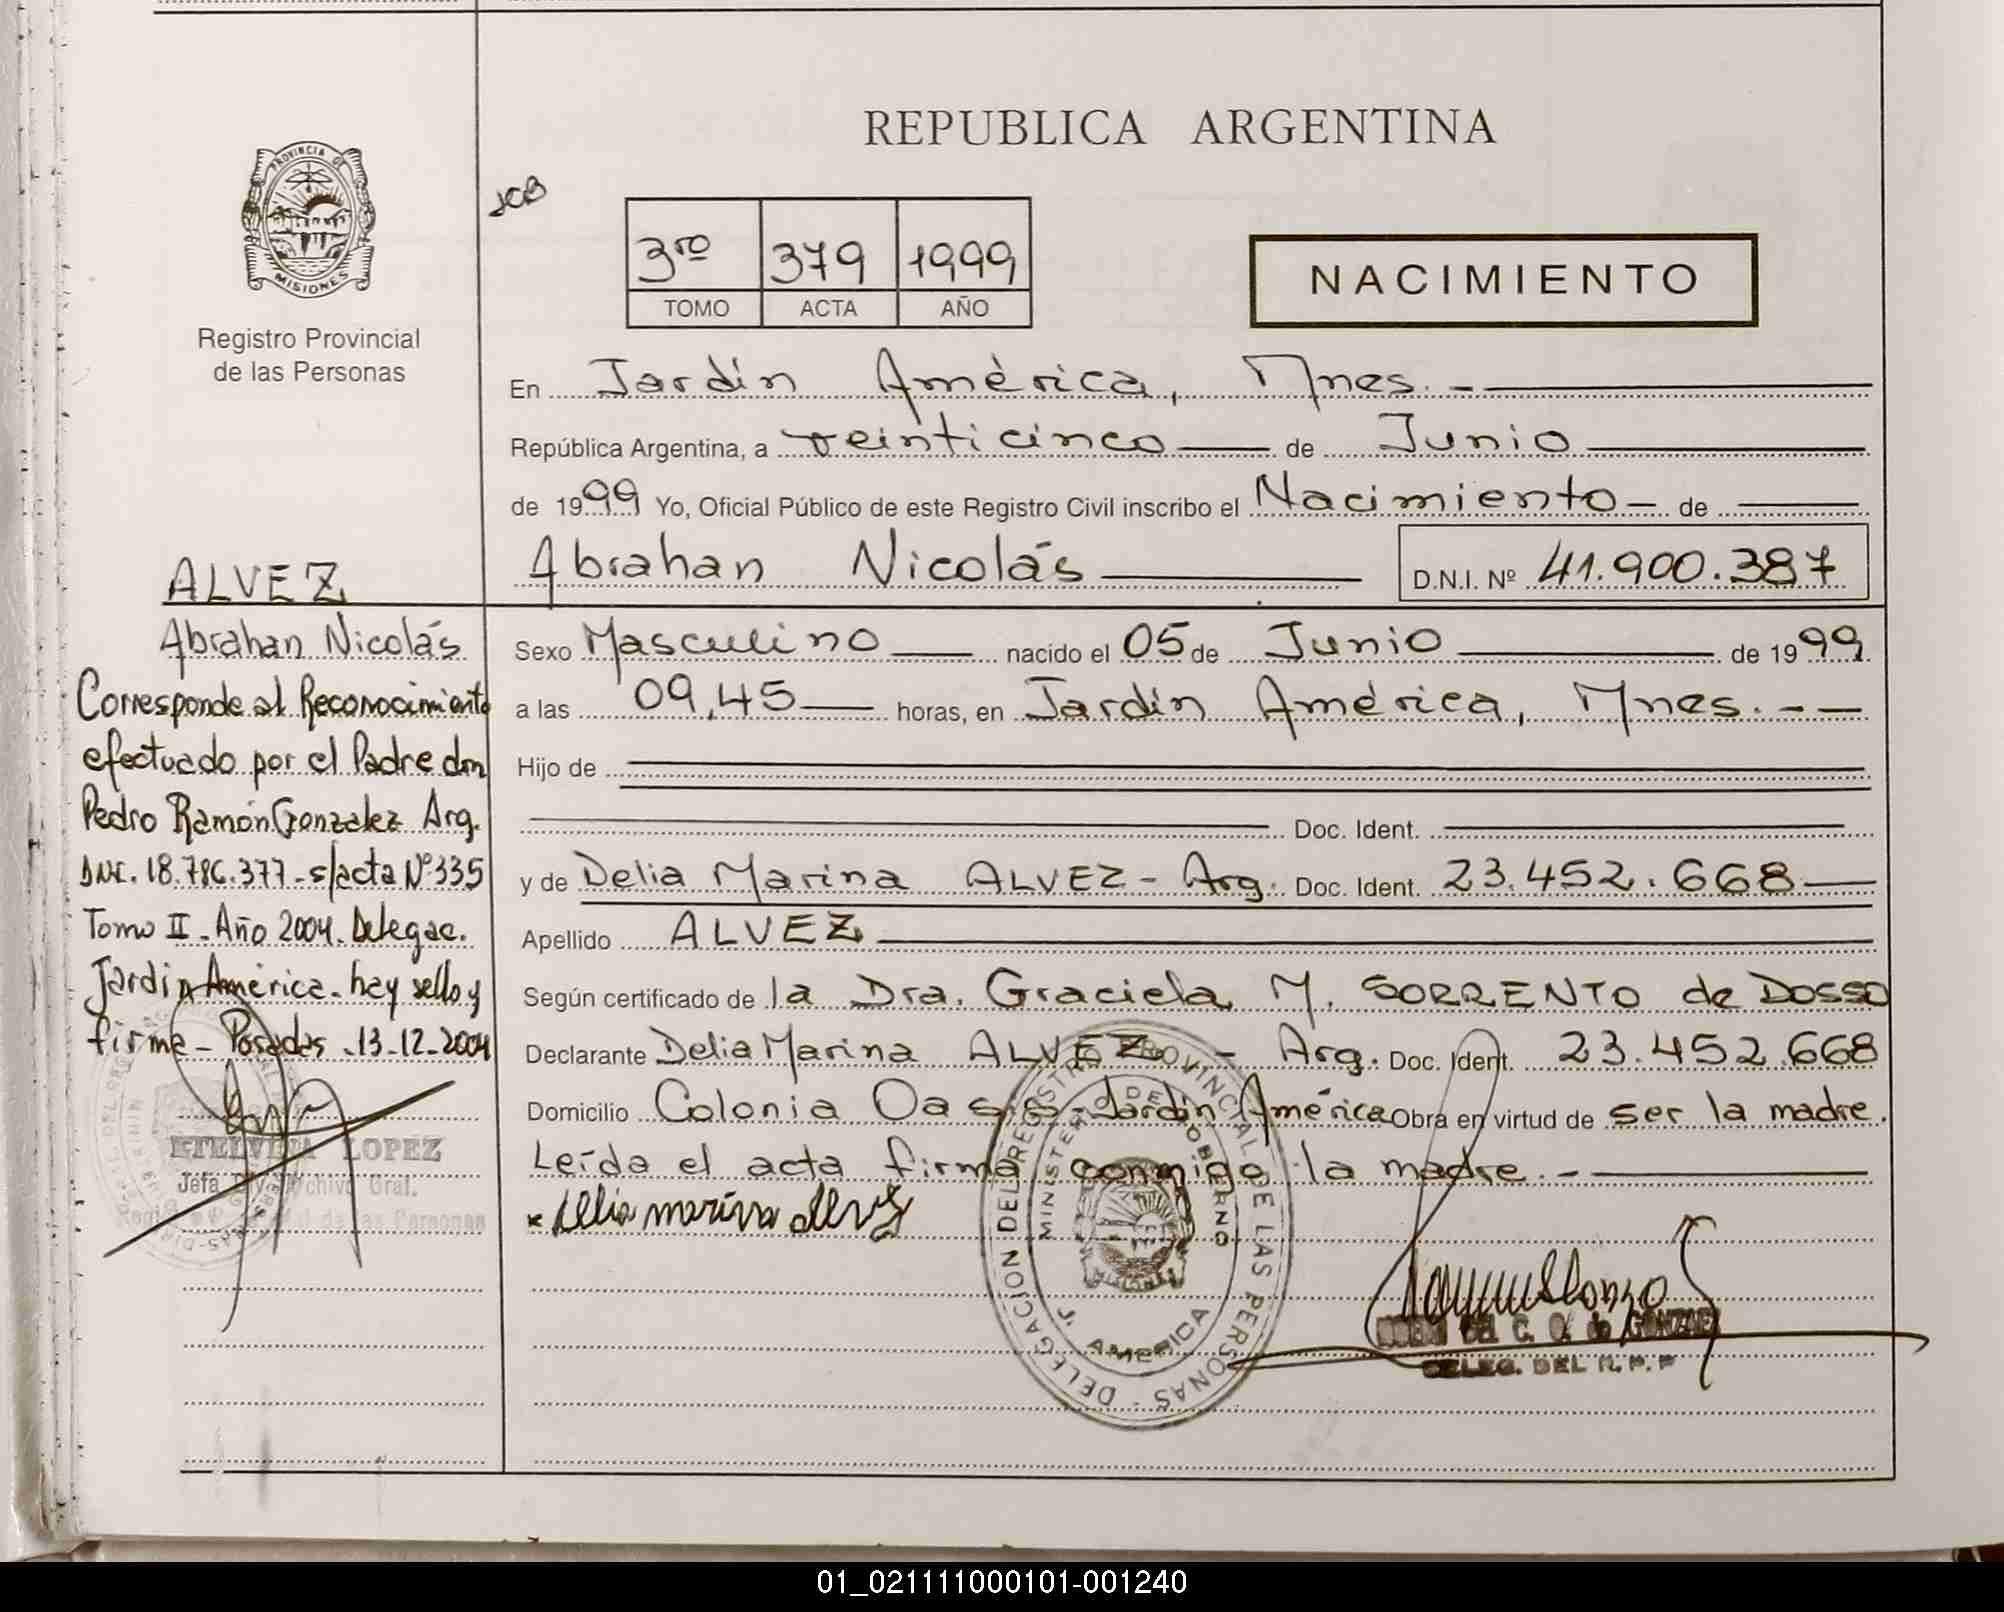 PROVINCIA DE
MISIONES
Registro Provincial
de las Personas
REPUBLICA ARGENTINA
JCB
3ro 379 1999
TOMO ACTA AÑO
NACIMIENTO
En Jardín América, Mnes. -
República Argentina, a veinticinco de Junio
de 1999 Yo, Oficial Público de este Registro Civil inscribo el Nacimiento - de
Abrahan Nicolás D.N.I. Nº 41.900.387
Sexo Masculino nacido el 05 de Junio de 1999
a las 09,45 horas, en Jardín América, Mnes. - -
Hijo de
Doc. Ident.
y de Delia Marina ALVEZ - Arg. Doc. Ident. 23.452.668
Apellido ALVEZ
Según certificado de la Dra. Graciela M. SORRENTO de DOSSO
Declarante Delia Marina ALVEZ - Arg. Doc. Ident. 23.452.668
Domicilio Colonia Oasis - Jardín América Obra en virtud de ser la madre.
Leída el acta firma conmigo la madre. -
x Delia marina alvez
DELEGACION DEL REGISTRO PROVINCIAL DE LAS PERSONAS -
MINISTERIO DE GOBIERNO
J. AMERICA
DEL C. O. de GONZALEZ
DELEG. DEL R. P. P
ALVEZ
Abrahan Nicolás
Corresponde al Reconocimiento
efectuado por el Padre don
Pedro Ramón Gonzalez Arg.
DNI. 18.786.377 - s/acta Nº 335
Tomo II - Año 2004. Delegac.
Jardín América - hay sello y
firma - Posadas - 13-12-2004
ETELVINA LOPEZ
Jefa Div. Archivo Gral.
de las Personas
01_021111000101-001240